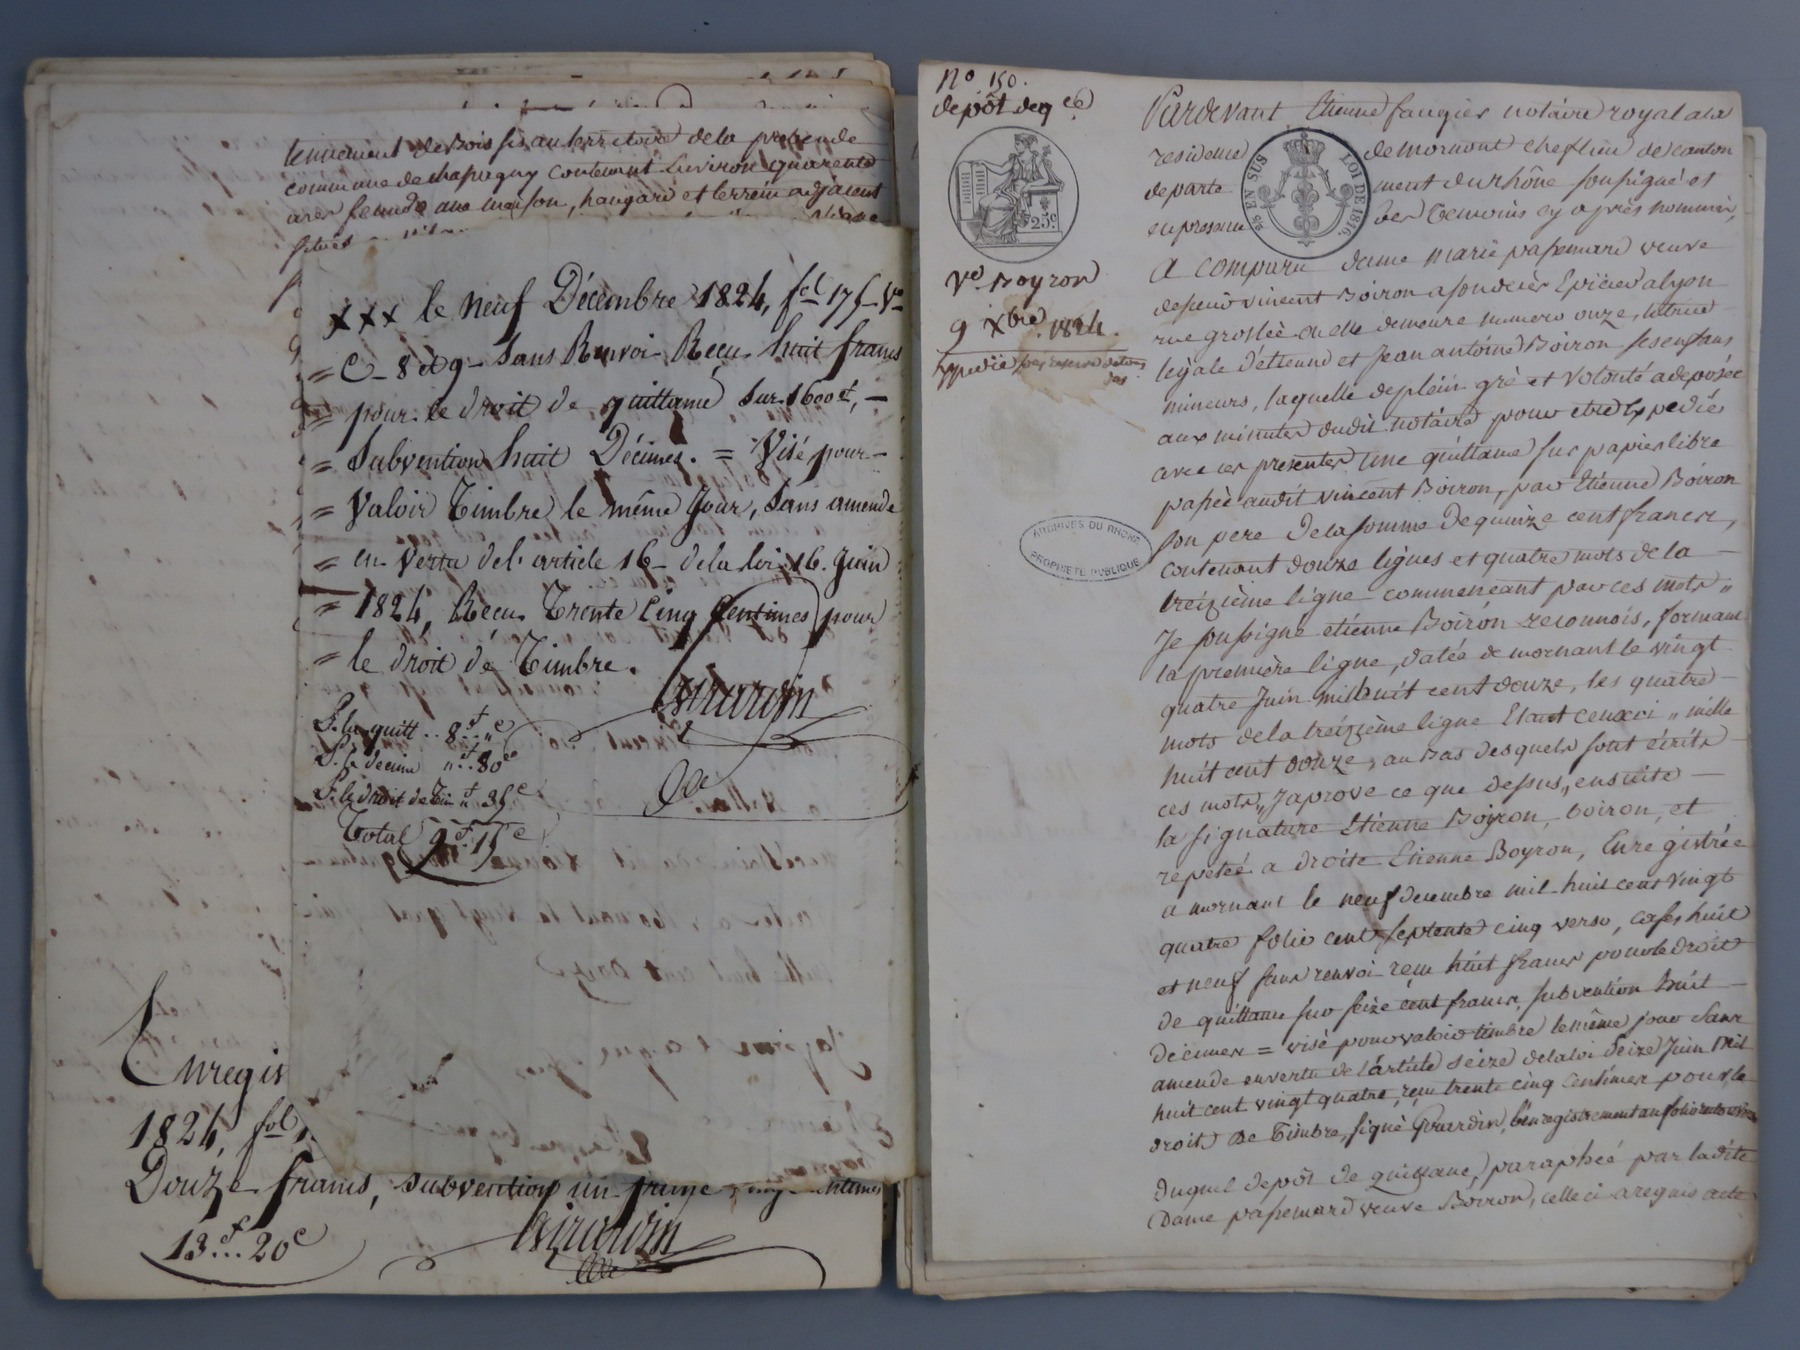 tennement de Bois sis au territoire de la prebende
commune de chassagny contenant Environ quarante
ares ensuite une maison, hangard et terrein adjacent
situés
xxx le neuf Décembre 1824, fol 175 Vo
= C. 8 et 9 - Sans Renvoi - Recu huit francs
= pour le droit de quittance sur 1600 f, -
= Subvention huit Décimes. = Visé pour -
= Valoir Timbre le même Jour, Sans amende
= en vertu de l'article 16 - de la loi 16. Juin
= 1824, Recu Trente Cinq Centimes pour
= le droit de Timbre.
Girardin
P. la quitt .. 8 f " c
P. le décime " f 80 c
P. le droit de Tim " f 35 c
Total 9 f 15 c
Enregis
1824, fol
Douze francs, subvention un franc vingt centimes
Girardin
13 f... 20 c
No 150.
depôt de qce
25 c
Ve Boyron
9 Xbre 1824.
Expedié
ARCHIVES DU RHONE
PROPRIETE PUBLIQUE
Pardevant Etienne faugier notaire royal a la
residence de mornant cheflieu de canton
departe ment du rhône soussigné et
en presence des temoins cy après nommés,
EN SUS LOI DE 1816.
A comparu dame marie passemard veuve
de feu vincent Boiron a son decès Epicier a lyon
rue groslée ou elle demeure numero onze, tutrice
legale d'etienne et Jean antoine Boiron ses enfans
mineurs, laquelle de plein gré et volonté a deposée
aux minutes dudit notaire pour etre Expediée
avec ces presentes une quittance sur papier libre
passée audit vincent Boiron, par Etienne Boiron
son pere de la somme de quinze cent francs,
contenant douze lignes et quatre mots de la
treizième ligne commencant par ces mots "
Je soussigne etienne Boiron reconnois, formant
la première ligne, datée de mornant le vingt
quatre Juin mil huit cent douze, les quatre
mots de la treizième ligne Etant ceux ci " mille
huit cent douze, au bas desquels sont écrits
ces mots " Japrove ce que dessus, " ensuite
la signature Etienne Boyron, boiron, et
repetée a droite Etienne Boyron, Enregistrée
a mornant le neuf decembre mil huit cent vingt
quatre folio cent septente cinq verso, cases huit
et neuf sans renvoi recu huit francs pour le droit
de quittance sur seize cent francs, subvention huit
decimes = visé pour valoir timbre le même jour Sans
amende en vertu de l'article seize de la loi seize Juin mil
huit cent vingt quatre, recu trente cinq centimes pour le
droit de Timbre, signé Girardin, l'enregistrement au folio
Duquel depôt de quittance, paraphée par ladite
Dame passemard veuve Boiron, celle ci a requis acte